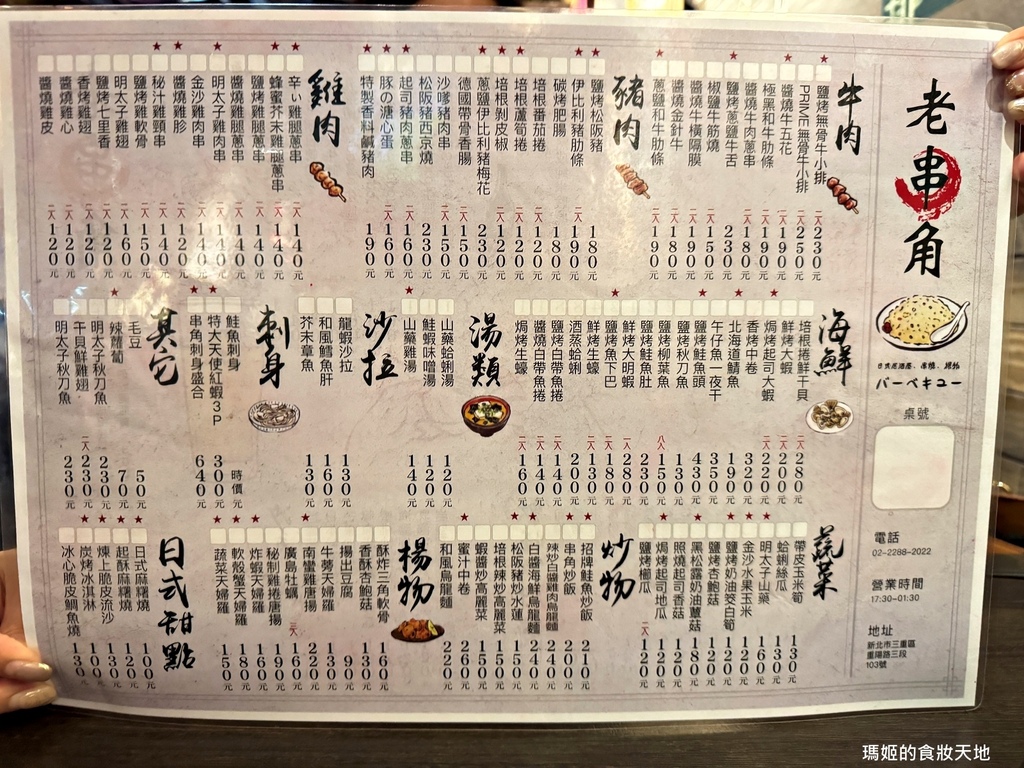 老串角
日式居酒屋、串燒、揚物
バーベキュー
桌號
電話
02-2288-2022
營業時間
17:30-01:30
地址
新北市三重區
重陽路三段
103號
牛肉
鹽烤無骨牛小排 二入 230元
PRIME無骨牛小排 二入 250元
醬燒牛五花 二入 190元
極黑和牛肋條 二入 190元
醬燒牛肉蔥串 二入 180元
鹽烤蔥鹽牛舌 230元
椒鹽牛筋燒 二入 150元
醬燒牛橫隔膜 二入 190元
醬燒金針牛 二入 180元
蔥鹽和牛肋條 二入 190元
豬肉
鹽烤松阪豬 180元
伊比利豬肋條 二入 190元
碳烤肥腸 180元
培根番茄捲 二入 120元
培根蘆筍捲 二入 120元
培根剝皮椒 二入 120元
蔥鹽伊比利豬梅花 230元
德國帶骨香腸 二入 150元
沙嗲豬肉串 二入 150元
松阪豬西京燒 230元
起司豬肉蔥串 二入 160元
豚の溏心蛋 二入 160元
特製香料鹹豬肉 190元
雞肉
辛い雞腿蔥串 二入 140元
蜂蜜芥末雞腿蔥串 二入 140元
鹽烤雞腿蔥串 二入 140元
醬燒雞腿蔥串 二入 140元
明太子雞肉串 二入 140元
金沙雞肉串 二入 140元
醬燒雞胗 二入 120元
秘汁雞頸串 二入 140元
鹽烤雞軟骨 二入 150元
明太子雞翅 二入 160元
鹽烤七里香 二入 120元
香烤雞翅 二入 120元
醬燒雞心 二入 120元
醬燒雞皮 二入 120元
海鮮
培根捲鮮干貝 二入 280元
鮮烤大蝦 二入 200元
焗烤起司大蝦 二入 220元
香烤中卷 320元
北海道鯖魚 190元
午仔魚一夜干 350元
鹽烤鮭魚頭 430元
鹽烤秋刀魚 130元
鹽烤柳葉魚 八入 150元
鹽烤鮭魚肚 230元
鮮烤大明蝦 一入 280元
鹽烤魚下巴 二入 180元
鮮烤生蠔 二入 130元
酒蒸蛤蜊 200元
鹽烤白帶魚捲 二入 140元
醬燒白帶魚捲 二入 140元
焗烤生蠔 二入 160元
湯類
山藥蛤蜊湯 120元
鮭蝦味噌湯 120元
山藥雞湯 140元
沙拉
龍蝦沙拉 130元
和風鱈魚肝 160元
芥末章魚 130元
刺身
鮭魚刺身 時價
特大天使紅蝦3P 300元
串角刺身盛合 640元
其它
毛豆 50元
辣蘿蔔 70元
明太子秋刀魚 230元
干貝鮮雞翅 二入 230元
明太子秋刀魚 230元
蔬菜
帶皮玉米筍 130元
蛤蜊絲瓜 130元
明太子山藥 160元
金沙水果玉米 120元
鹽烤奶油筊白筍 120元
鹽烤杏鮑菇 120元
黑松露奶油蕈菇 180元
照燒起司香菇 120元
焗烤起司地瓜 150元
鹽烤櫛瓜 二入 120元
炒物
招牌鮭魚炒飯 210元
串角炒飯 200元
辣炒白醬雞肉烏龍麵 240元
白醬海鮮烏龍麵 240元
松阪豬炒水蓮 150元
培根辣炒高麗菜 150元
蝦醬炒高麗菜 150元
蜜汁中卷 260元
和風烏龍麵 220元
楊物
酥炸三角軟骨 160元
香酥杏鮑菇 130元
揚出豆腐 90元
牛蒡天婦羅 130元
南蠻雞唐揚 220元
廣島牡蠣 二入 160元
秘制雞捲唐揚 190元
炸蝦天婦羅 160元
軟殼蟹天婦羅 180元
蔬菜天婦羅 150元
日式甜點
日式麻糬燒 100元
起酥麻糬燒 120元
爆上脆皮流沙 130元
炭烤冰淇淋 100元
冰心脆皮鯛魚燒 130元
瑪姬的食妝天地